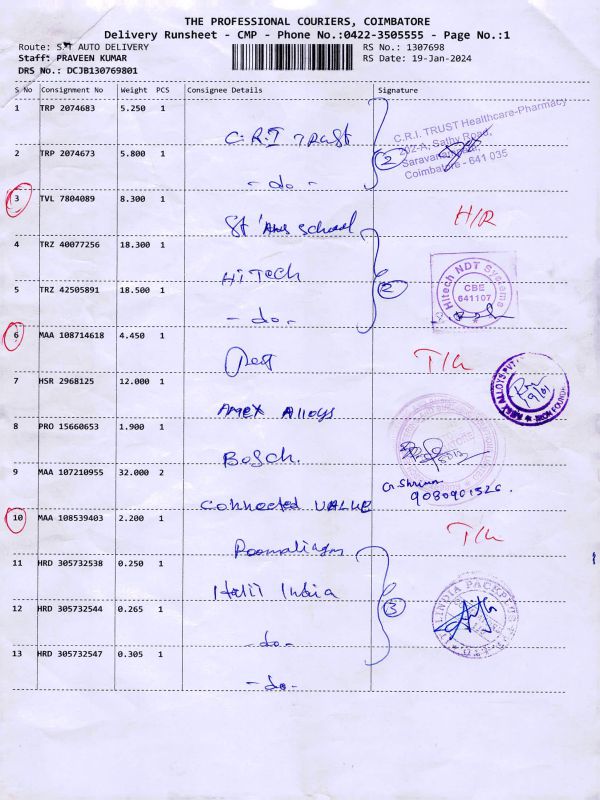 THE PROFESSIONAL COURIERS, COIMBATORE
Delivery Runsheet - CMP - Phone No.:0422-3505555 - Page No.:1
Route: S.T AUTO DELIVERY
RS No.: 1307698
Staff: PRAVEEN KUMAR
RS Date: 19-Jan-2024
DRS No.: DCJB130769801
S No Consignment No Weight PCS Consignee Details Signature
1 TRP 2074683 5.250 1 C.R.I Trust
C.R.I. TRUST Healthcare-Pharmacy
202-A, Sathy Road,
Coimbatore - 641 035
2
2 TRP 2074673 5.800 1 - do -
3 TVL 7804089 8.300 1 St Anns School H/R
4 TRZ 40077256 18.300 1 Hitech
Hitech NDT Systems
CBE
641107
2
5 TRZ 42505891 18.500 1 - do -
6 MAA 108714618 4.450 1
7 HSR 2968125 12.000 1 Amex Alloys
8 PRO 15660653 1.900 1 Bosch.
9 MAA 107210955 32.000 2 Connected VALUE
9080901526.
10 MAA 108539403 2.200 1
11 HRD 305732538 0.250 1 India
INDIA PACKERS
3
12 HRD 305732544 0.265 1 - do -
13 HRD 305732547 0.305 1 - do -